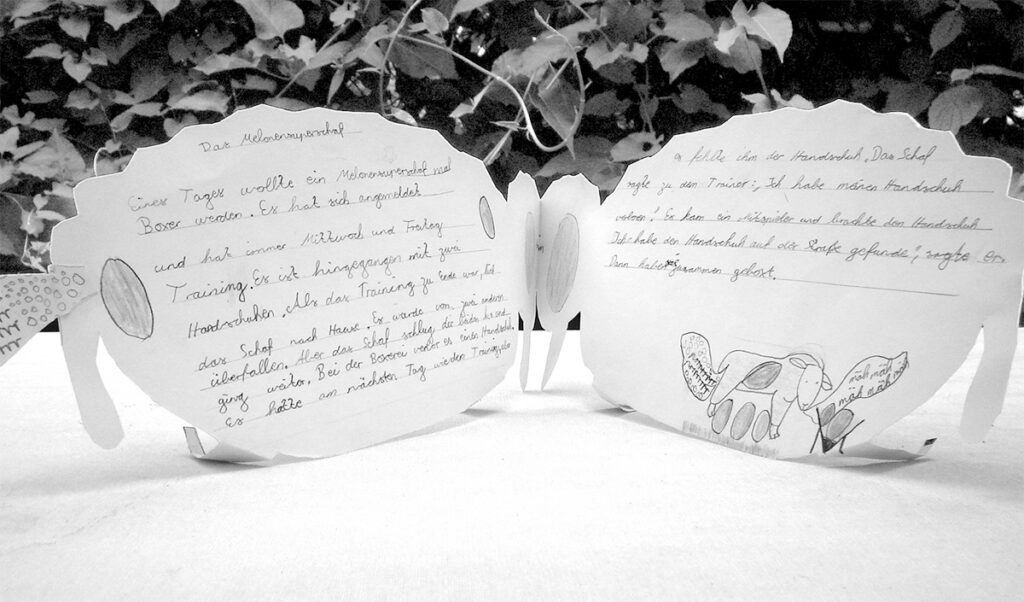 Das Melonensuperschaf
Eines Tages wollte ein Melonensuperschaf mal
Boxer werden. Es hat sich angemeldet
und hat immer Mittwoch und Freitag
Training. Es ist hingegangen mit zwei
Handschuhen. Als das Training zu Ende war, lief
das Schaf nach Hause. Es wurde von zwei anderen
überfallen. Aber das Schaf schlug die beiden k.o. und
ging weiter. Bei der Boxerei verlor es einen Handschuh.
Es hatte am nächsten Tag wieder Training, aber
es fehlte ihm der Handschuh. Das Schaf
sagte zu dem Trainer: „Ich habe meinen Handschuh
verloren! Es kam ein Mitspieler und brachte den Handschuh
Ich habe den Handschuh auf der Straße gefunden", sagte er.
Dann haben sie zusammen geboxt.
mäh mäh
mäh mäh mäh